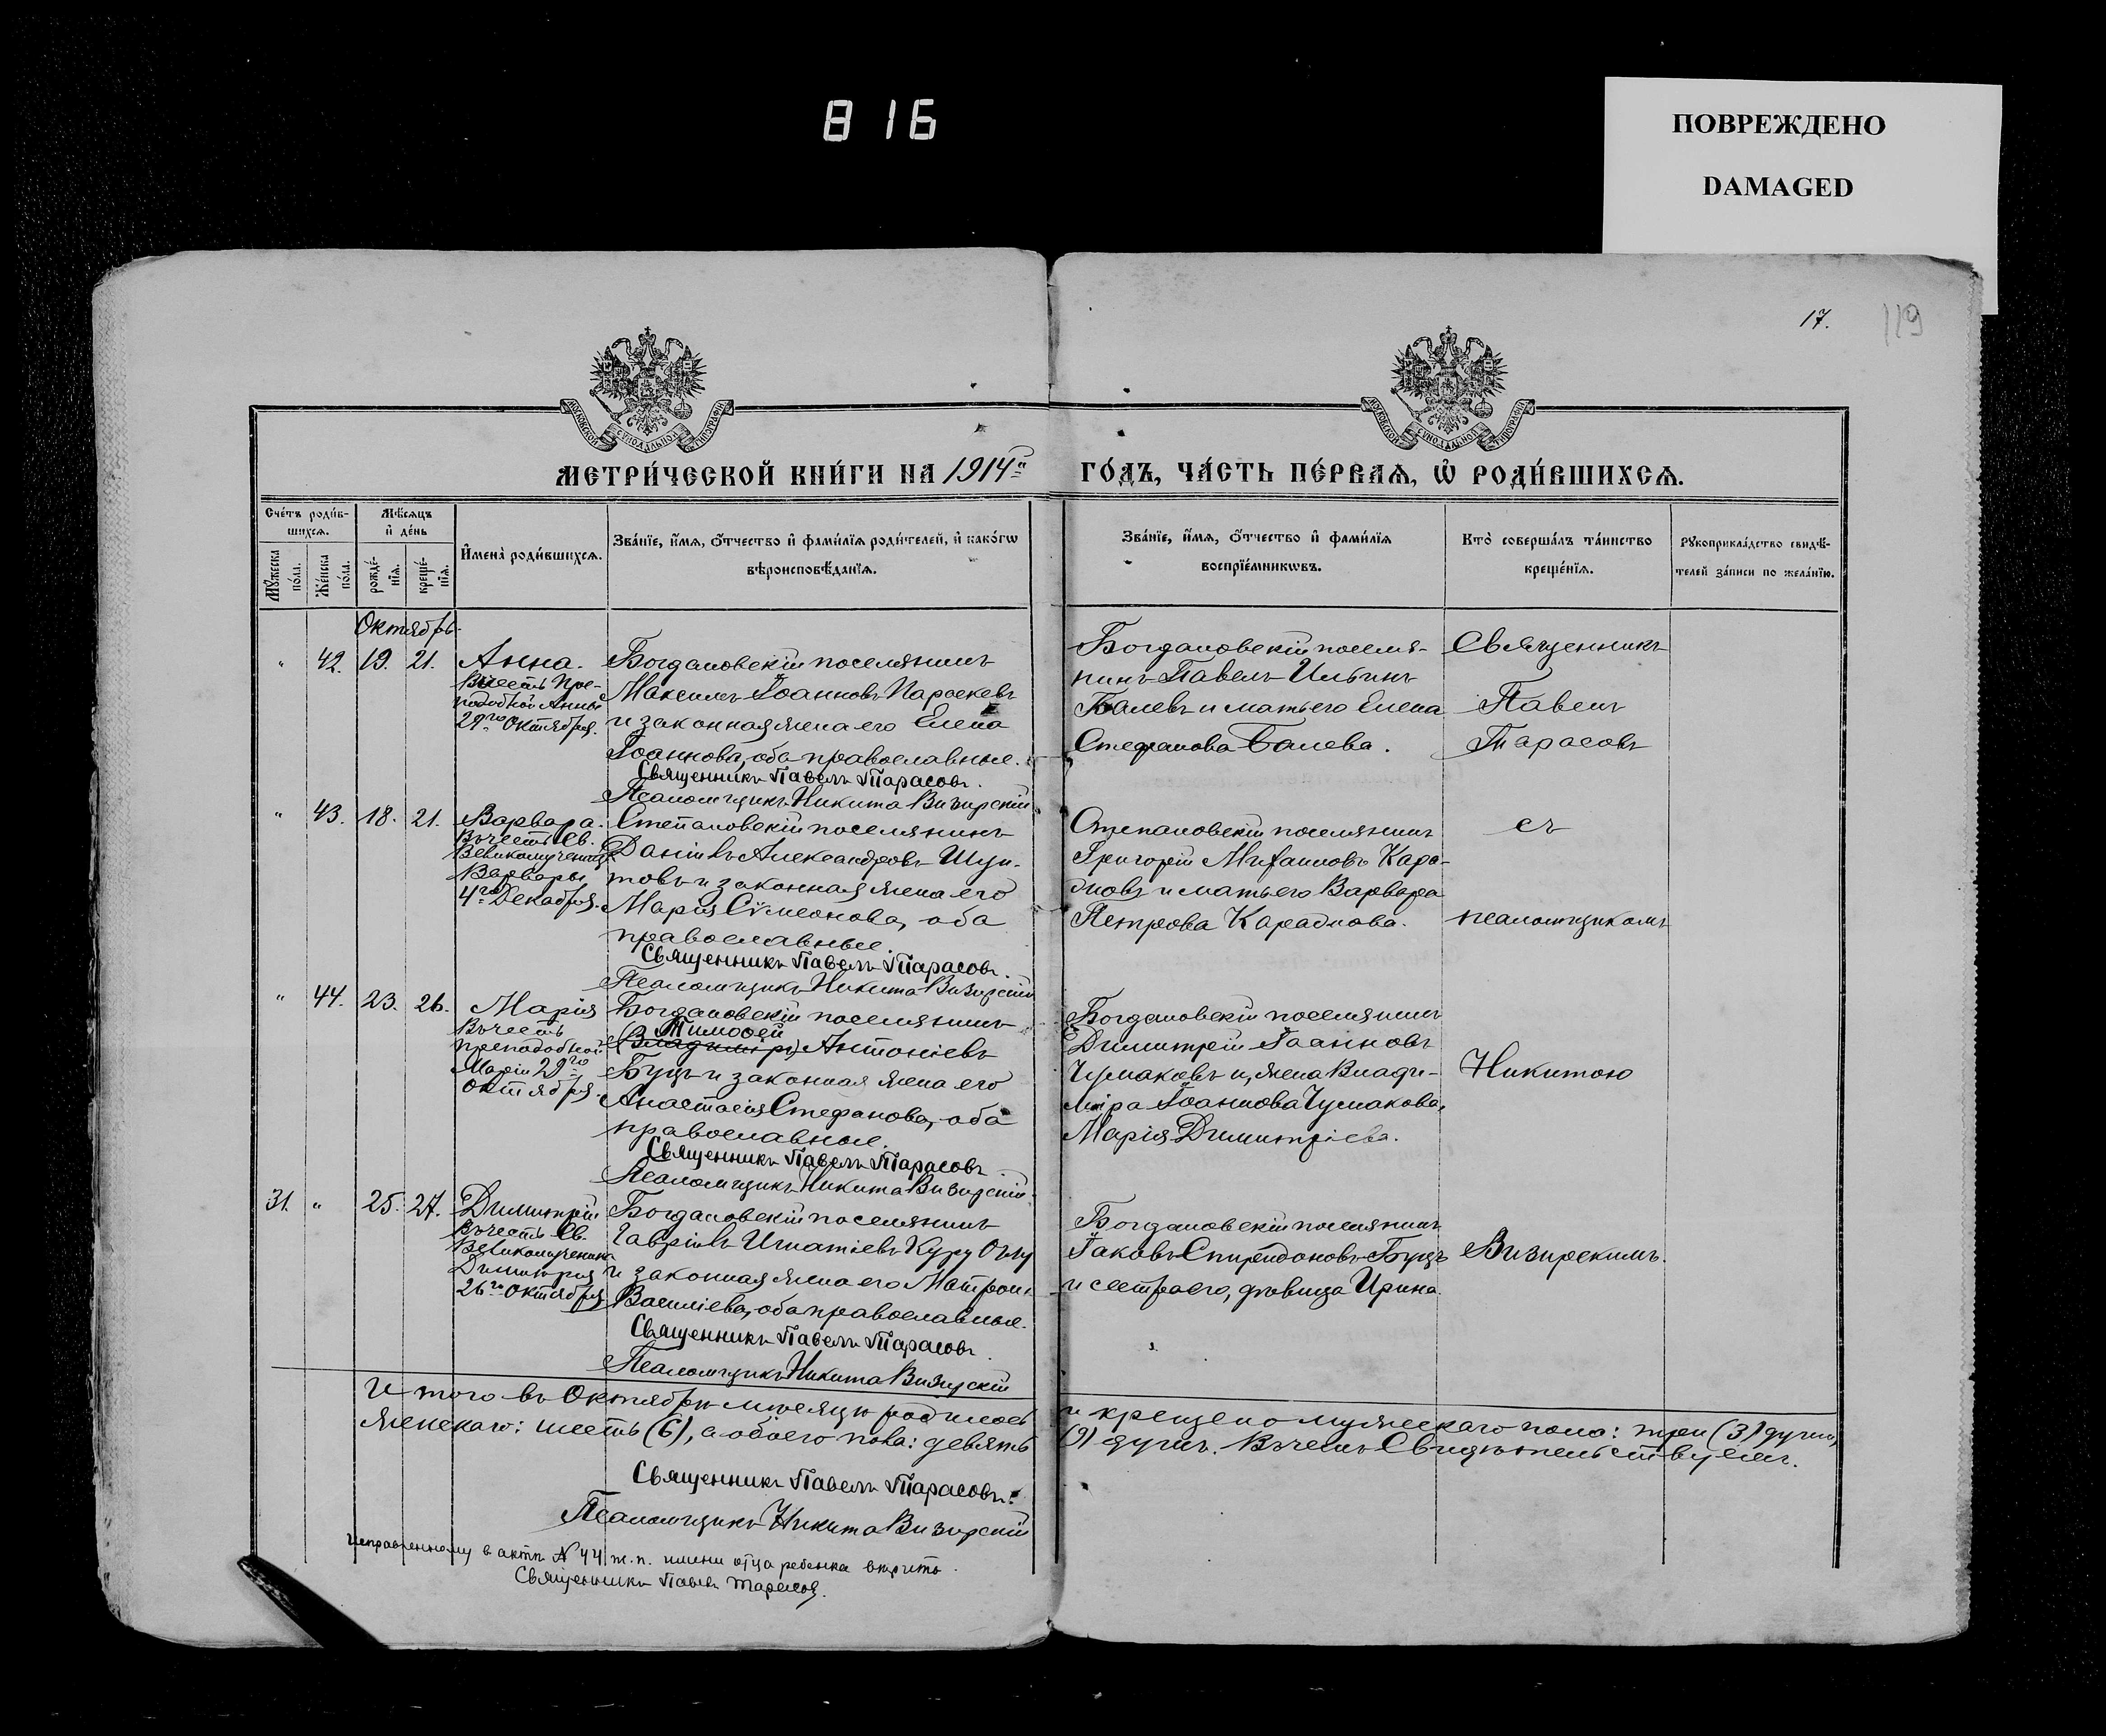 816
ПОВРЕЖДЕНО
DAMAGED
17.
119
МОСКОВСКОЙ СѴНОДАЛЬНОЙ ТИПОГРАФІИ
МОСКОВСКОЙ СѴНОДАЛЬНОЙ ТИПОГРАФІИ
МЕТРИ́ЧЕСКОЙ КНИ́ГИ НА 1914й
ГО́ДЪ, ЧА́СТЬ ПЕ́РВАѦ, Ѽ РОДИ́ВШИХСѦ.
Сче́тъ роди́в-
шихсѧ.
Мꙋ́жеска
по́ла.
Же́нска
по́ла.
Мѣ́сѧцъ
и҆ де́нь
рожде́-
нїѧ.
креще́-
нїѧ.
И҆мена̀ роди́вшихсѧ.
Зва́нїе, и҆́мѧ, ѻ҆́тчество и҆ фами́лїѧ роди́телей, и҆ како́гѡ
вѣроисповѣ́данїѧ.
Зва́нїе, и҆́мѧ, ѻ҆́тчество и҆ фами́лїѧ
воспрїе́мникѡвъ.
Кто̀ соверша́лъ та́инство
креще́нїѧ.
Рꙋкоприкла́дство свидѣ́-
телей за́писи по жела́нїю.
Октябрь.
" 42. 19. 21. Анна.
Въ честь Пре-
подобной Анны
29го Октября.
Богдановскій поселянинъ
Максимъ Іоанновъ Параскевъ
и законная жена его Елена
Іоаннова, оба православные.
Священникъ Павелъ Тарасовъ.
Псаломщикъ Никита Визирскій
Богдановскій поселя-
нинъ Павелъ Ильинъ
Балевъ и мать его Елена
Стефанова Балева.
Священникъ
Павелъ
Тарасовъ
" 43. 18. 21. Варвара.
Въ честь Св.
Великомученицы
Варвары
4го Декабря.
Степановскій поселянинъ
Даніилъ Александровъ Шун-
товъ и законная жена его
Марія Сѵмеонова, оба
православные.
Священникъ Павелъ Тарасовъ.
Псаломщикъ Никита Визирскій
Степановскій поселянинъ
Григорій Михаиловъ Кара-
діовъ и мать его Варвара
Петрова Карадіова.
съ
псаломщикомъ
" 44. 23. 26. Марія
Въ честь
преподобной
Маріи 29го
октября.
Богдановскій поселянинъ
Тимоѳей
(Владиміръ) Антоніевъ
Буцъ и законная жена его
Анастасія Стефанова, оба
православные.
Священникъ Павелъ Тарасовъ
Псаломщикъ Никита Визирскій.
Богдановскій поселянинъ
Димитрій Іоанновъ
Чумаковъ и, жена Влади-
міра Іоаннова Чумакова,
Марія Димитріева.
Никитою
31. " 25. 27. Димитрій
Въ честь Св.
Великомученика
Димитрія
26го Октября
Богдановскій поселянинъ
Гавріилъ Игнатіевъ Куру Оглу
и законная жена его Матрона
Василіева, оба православные.
Священникъ Павелъ Тарасовъ
Псаломщикъ Никита Визирскій
Богдановскій поселянинъ
Іаковъ Спиридоновъ Буцъ
и сестра его, дѣвица Ирина.
Визирскимъ.
Итого въ Октябрѣ мѣсяцѣ родилось
и крещено мужескаго пола: три (3) души,
женскаго: шесть (6), а обоего пола: девять
(9) душъ. Въ чемъ Свидѣтельствуемъ.
Священникъ Павелъ Тарасовъ.
Псаломщикъ Никита Визирскій
Исправленному в актѣ № 44 ж.п. имени отца ребенка вѣрить.
Священникъ Павелъ Тарасовъ.